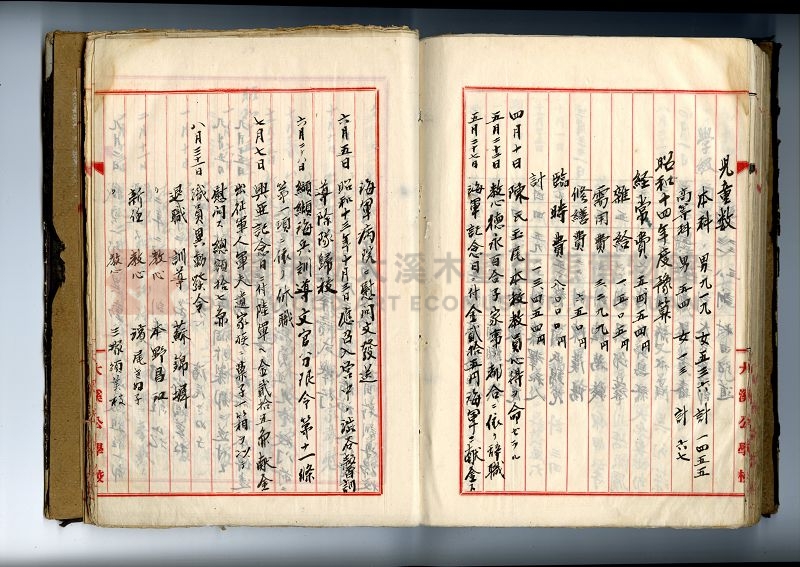 児童数
本科 男九一九 女五三六 計一四五五
高等科 男五四 女一三 計六七
昭和十四年度予算
経常費 五四五四円
雑給 一五〇五円
需用費 三二九九円
修繕費 六五〇円
臨時費 八〇〇〇円
計 一三四五四円
四月十日 陳氏玉尾本校教員心得ヲ命セラル
五月二十三日 教心徳永百合子家事ノ都合ニ依リ辞職
五月二十七日 海軍記念日ニ付金貳拾五円海軍ニ献金ス
大溪公學校
海軍病院ニ慰問文發送
六月五日 昭和十三年十月三日應召入營中ノ澁谷訓
導除隊歸校
六月二十八日 纐纈海乎訓導文官分限令第十一條
第一項ニ依リ休職
七月七日 興亜記念日ニ付陸軍ヘ金貳拾五円献金
出征軍人軍夫遺家族ニ菓子一箱ヲ以テ
慰問ス 總額拾七円
八月三十一日 職員異動發令
退職 訓導 蘇錦
〃 教心 本野昌江
新任 教心
〃 教心
大溪公學校